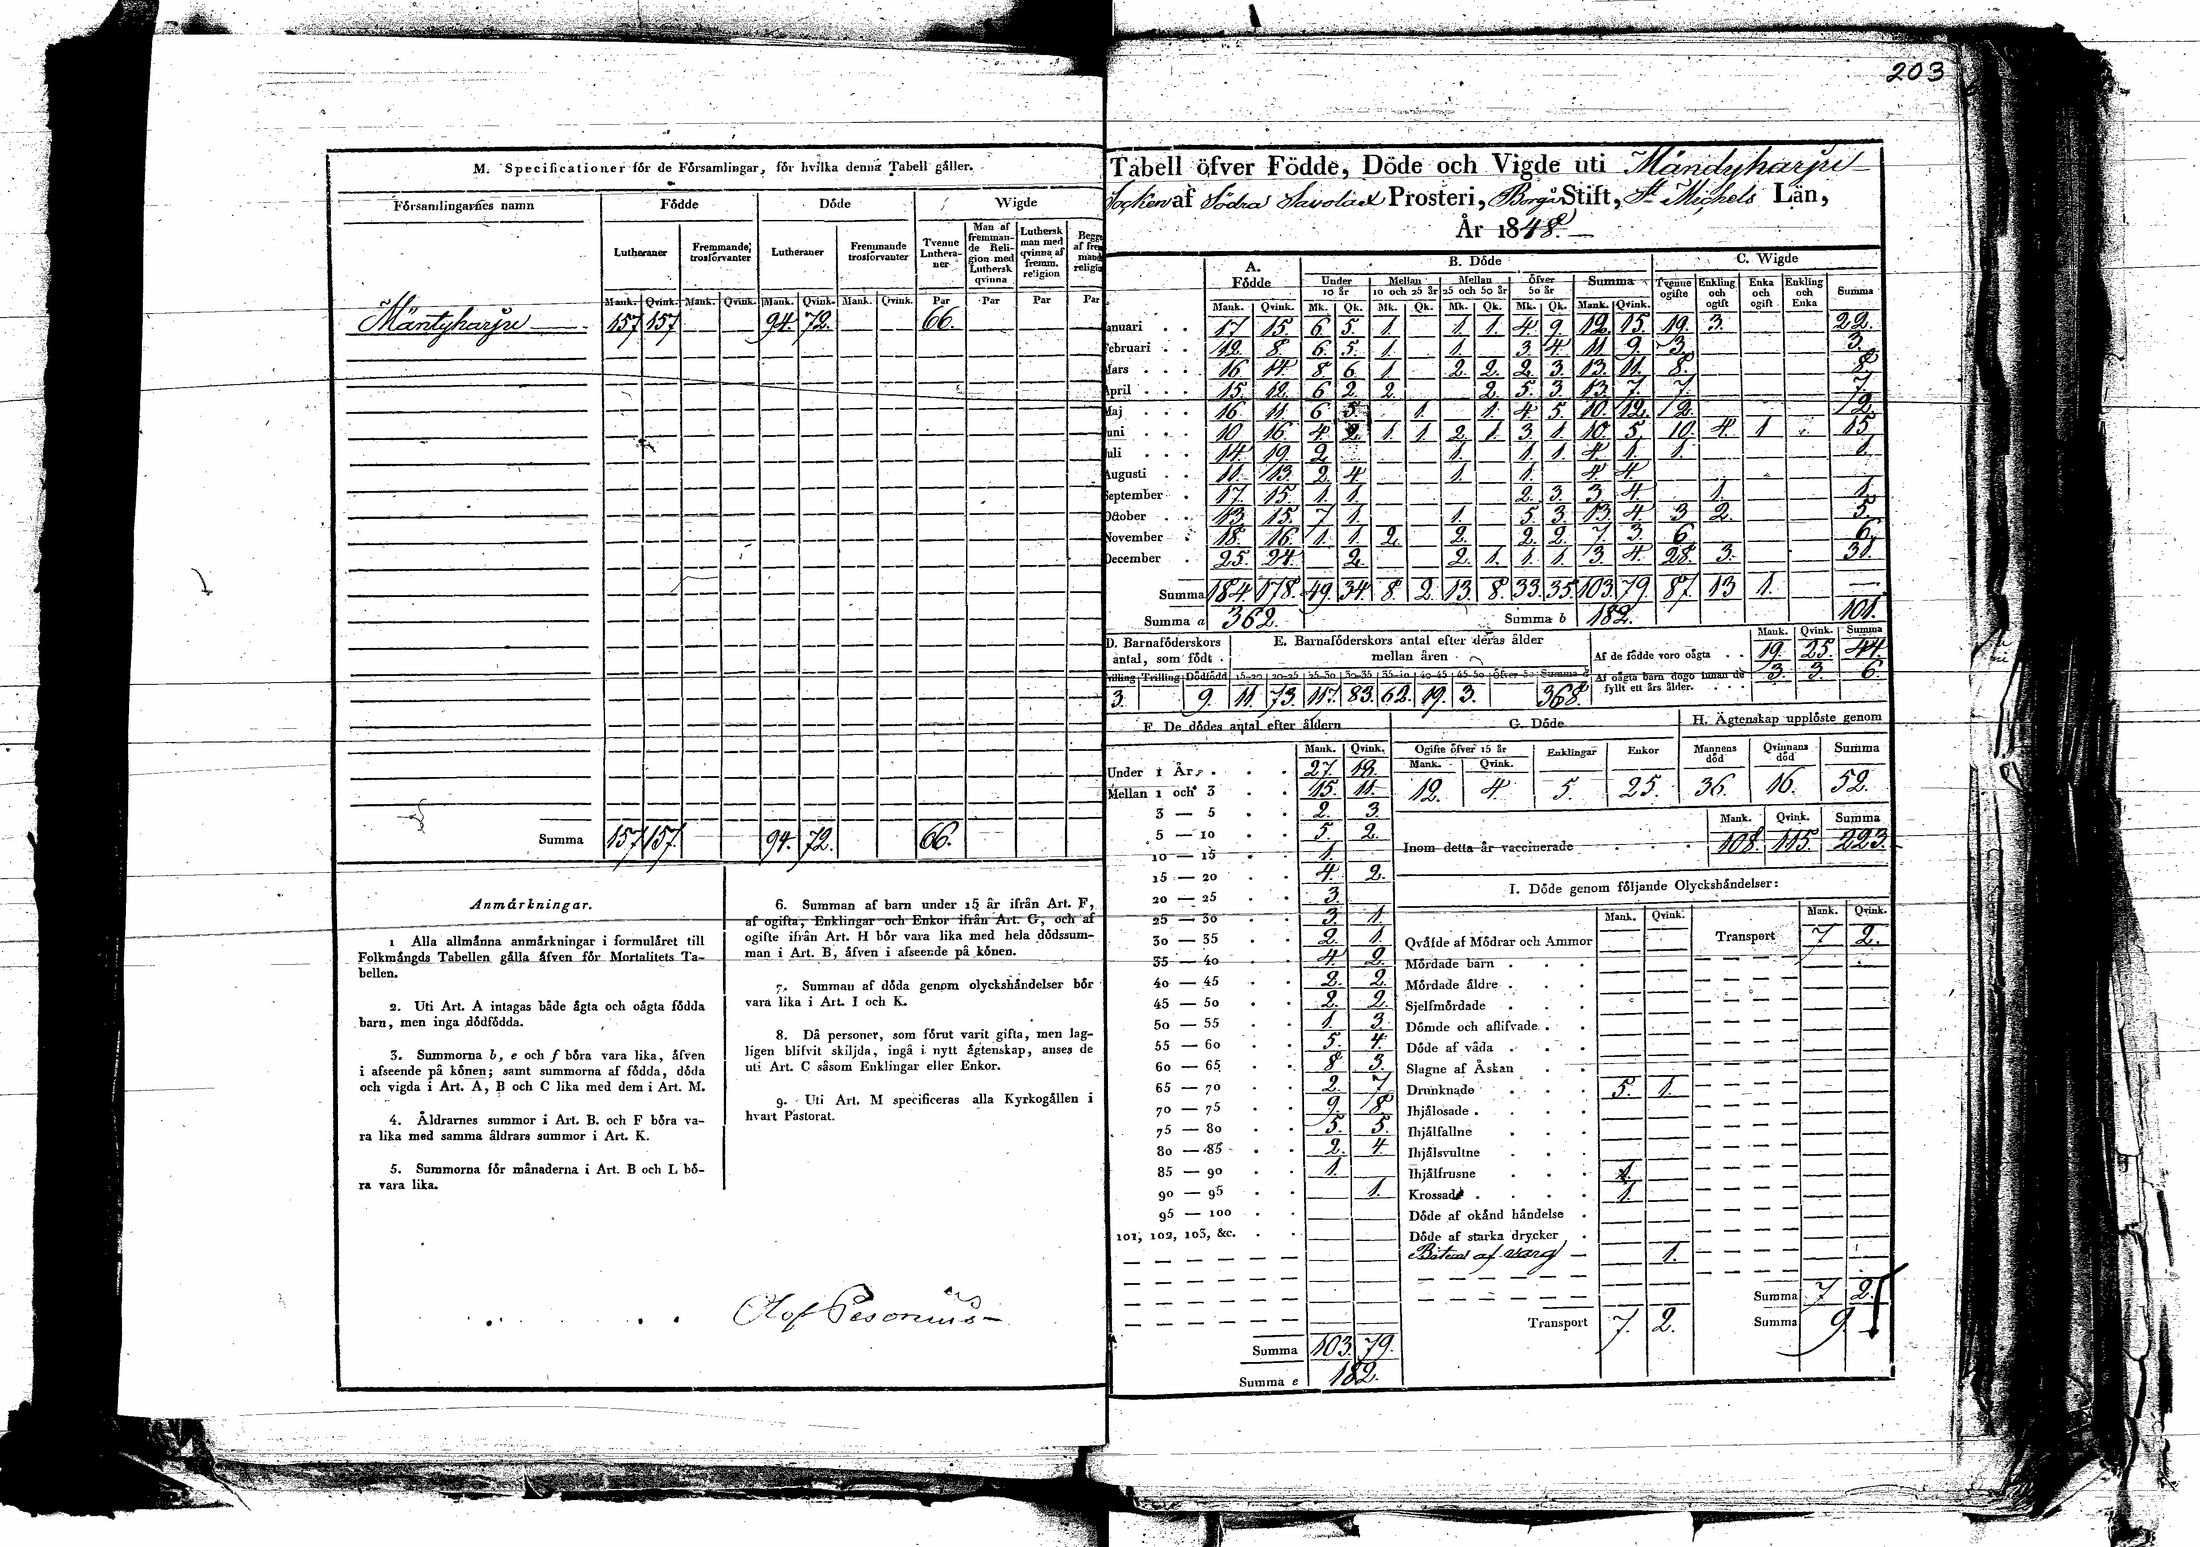 203
M. Specificationer för de Församlingar, för hvilka denna Tabell gäller.
Församlingarnes namn Födde Döde Wigde
Lutheraner Fremmande trosförvanter Lutheraner Fremmande trosförvanter Tvenne Lutheraner Man af fremmande Religion med Luthersk qvinna Luthersk man med qvinna af fremm. religion
Mank. Qvink. Mank. Qvink. Mank. Qvink. Mank. Qvink. Par Par Par Par
Mäntyharju 157 157 94. 72. 66.
Summa 157 157. 94. 72. 66.
Anmärkningar.
1 Alla allmänna anmärkningar i formuläret till
Folkmängds Tabellen gälla äfven för Mortalitets Ta-
bellen.
2. Uti Art. A intagas både ägta och oägta födda
barn, men inga dödfödda.
3. Summorna b, e och f böra vara lika, äfven
i afseende på könen; samt summorna af födda, döda
och vigda i Art. A, B och C lika med dem i Art. M.
4. Åldrarnes summor i Art. B. och F böra va-
ra lika med samma åldrars summor i Art. K.
5. Summorna för månaderna i Art. B och L bö-
ra vara lika.
6. Summan af barn under 15 år ifrån Art. F,
af ogifta, Enklingar och Enkor ifrån Art. G, och af
ogifte ifrån Art. H bör vara lika med hela dödssum-
man i Art. B, äfven i afseende på könen.
7. Summan af döda genom olyckshändelser bör
vara lika i Art. I och K.
8. Då personer, som förut varit gifta, men lag-
ligen blifvit skiljda, ingå i nytt ägtenskap, anses de
uti Art. C såsom Enklingar eller Enkor.
9. Uti Art. M specificeras alla Kyrkogällen i
hvart Pastorat.
Olof Pesonius
Tabell öfver Födde, Döde och Vigde uti Mändyharju
Socken af Södra Savolax Prosteri, Borgå Stift, St Michels Län,
År 1848.
A. Födde B. Döde C. Wigde
Under 10 år Mellan 10 och 25 år Mellan 25 och 50 år Öfver 50 år Summa Tvenne ogifte Enkling och ogift Enka och ogift Enkling och Enka Summa
Mank. Qvink. Mk. Qk. Mk. Qk. Mk. Qk. Mk. Qk. Mank. Qvink.
anuari 17 15 6 5. 1. 1. 1. 4. 9. 12. 15. 19. 3. 22.
ebruari 12. 8. 6. 5. 1. 1. 3. 4. 11. 9. 3. 3.
Mars 16 14 8 6. 1. 2. 2. 2. 3. 13. 11. 8. 8.
April 15. 12. 6 2. 2. 2. 5. 3. 13. 7. 7. 7.
Maj 16. 11. 6 5. 1. 1. 4 5. 10. 12. 12. 12.
uni 10 16. 4 2. 1. 1. 2. 1. 3. 1. 10. 5. 10. 4. 1 15.
uli 14 19. 2. 1. 1. 1. 4. 1. 1. 1.
Augusti 11. 13. 2. 4. 1. 1. 4 4.
September 17. 15. 1. 1. 2. 3. 3. 4. 1. 1.
October 13. 15. 7 1. 1. 5 3. 13. 4. 3 2. 5.
November 18. 16. 1. 1. 2. 2. 2. 2. 7 3. 6. 6.
December 25. 24. 2. 2. 1. 1. 1. 3. 4. 28. 3. 31.
Summa 184. 178. 49. 34. 8. 2. 13. 8. 33. 35. 103. 79. 87. 13 1.
Summa a 362. Summa b 182. 101.
D. Barnaföderskors antal, som födt
E. Barnaföderskors antal efter deras ålder mellan åren
villing Trilling Dödfödd 15-20 20-25 25-30 30-35 35-40 40-45 45-50 Öfver 50
3. 9. 11. 73. 117. 83. 62. 19. 3. 368.
Mank. Qvink. Summa
Af de födde voro oägta 19. 25. 44.
Af oägta barn dogo innan de fyllt ett års ålder. 3. 3. 6.
F. De dödes antal efter åldern
Mank. Qvink.
Under 1 År 27. 18.
Mellan 1 och 3 15. 11.
3 — 5 2. 3.
5 — 10 5. 2.
10 — 15 1.
15 — 20 4. 2.
20 — 25 3.
25 — 30 3. 1.
30 — 35 2. 1.
35 — 40 4. 2.
40 — 45 2. 2.
45 — 50 2. 2.
50 — 55 1. 3.
55 — 60 5. 4.
60 — 65 8 3.
65 — 70 2. 7
70 — 75 9. 8
75 — 80 5. 5.
80 — 85 2. 4.
85 — 90 1.
90 — 95 1.
95 — 100
101, 102, 103, &c.
Summa 103. 79.
Summa e 182.
G. Döde
Ogifte öfver 15 år Enklingar Enkor
Mank. Qvink.
12. 4. 5. 25.
H. Ägtenskap upplöste genom
Mannens död Qvinnans död Summa
36. 16. 52.
Mank. Qvink. Summa
Inom detta år vaccinerade 108. 115. 223.
I. Döde genom följande Olyckshändelser:
Mank. Qvink. Mank. Qvink.
Qväfde af Mödrar och Ammor Transport 7 2.
Mördade barn
Mördade äldre
Sjelfmördade
Dömde och aflifvade
Döde af våda
Slagne af Åskan
Drunknade 5. 1.
Ihjälosade
Ihjälfallne
Ihjälsvultne
Ihjälfrusne 1.
Krossade 1.
Döde af okänd händelse
Döde af starka drycker
Biten af varg 1.
Summa 7 2.
Transport 7. 2. Summa 9.